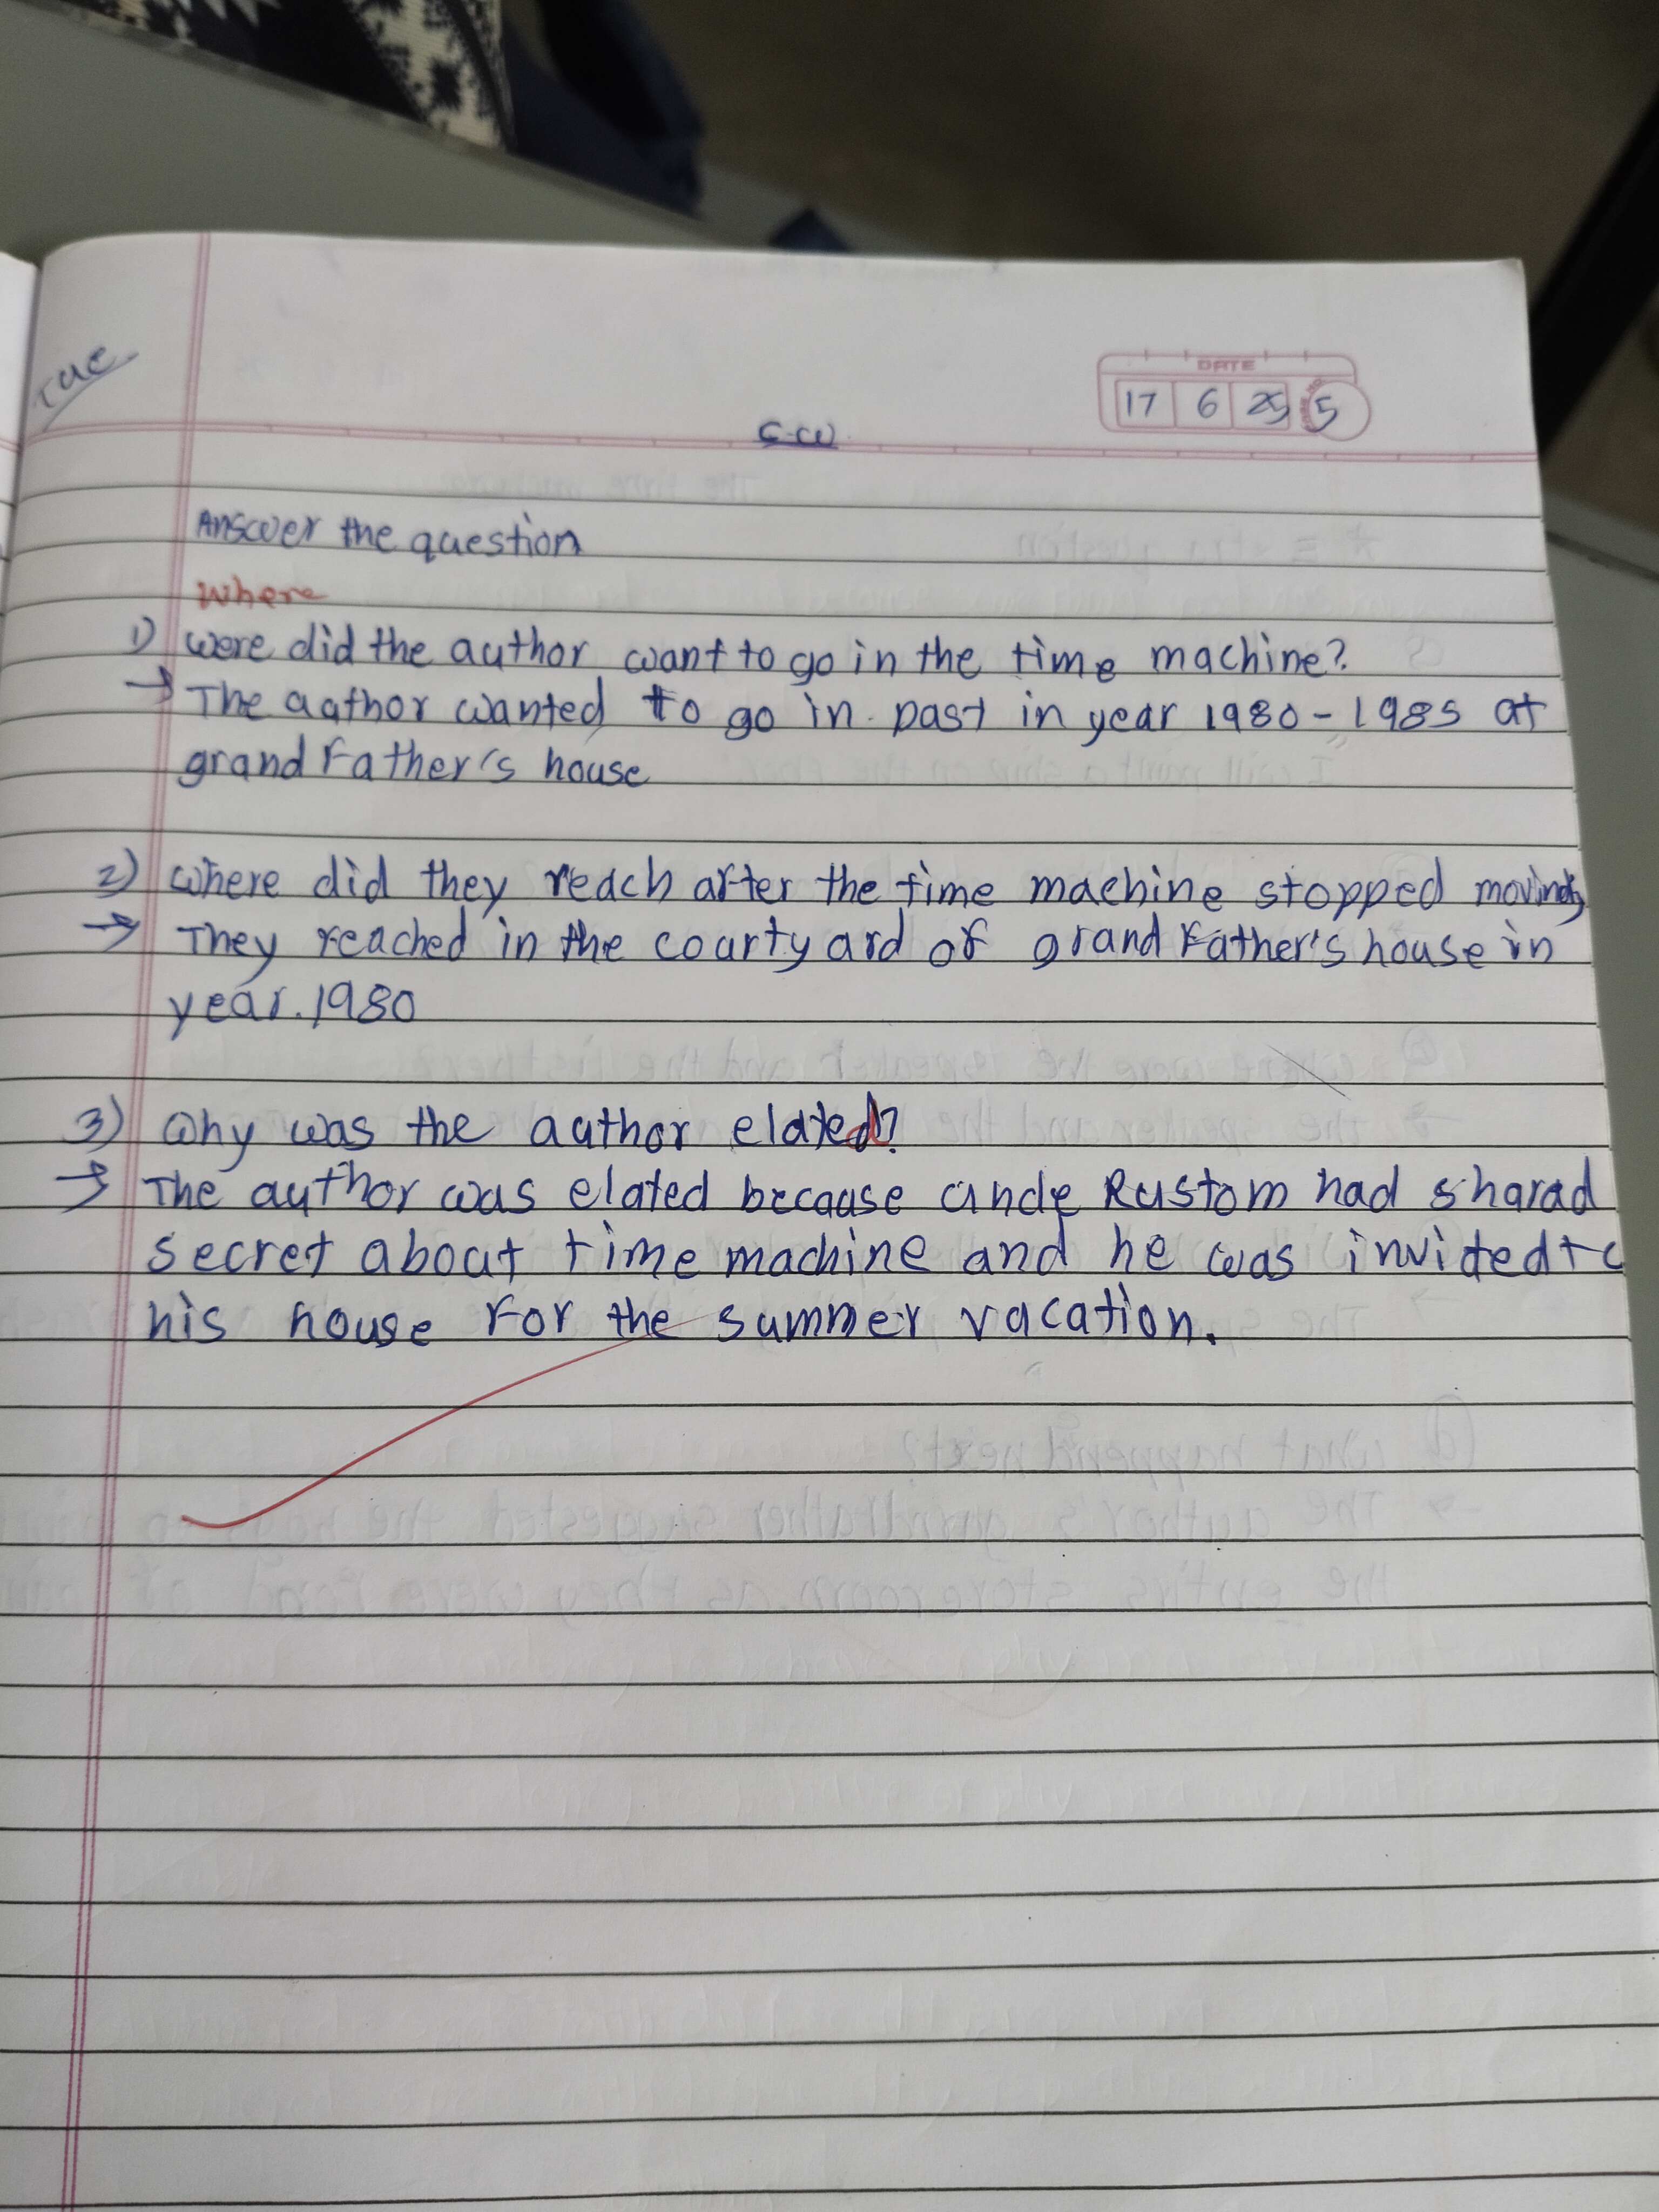 Tue
DATE
17 6 25 5
C.W
Answer the question
Where
1) were did the author want to go in the time machine?
→ The author wanted to go in past in year 1980-1985 at
grandfather's house
2) where did they reach after the time machine stopped moving
→ They reached in the courtyard of grandfather's house in
year.1980
3) Why was the author elated?
→ The author was elated because uncle Rustom had sharad
secret about time machine and he was invited to
his house for the summer vacation.